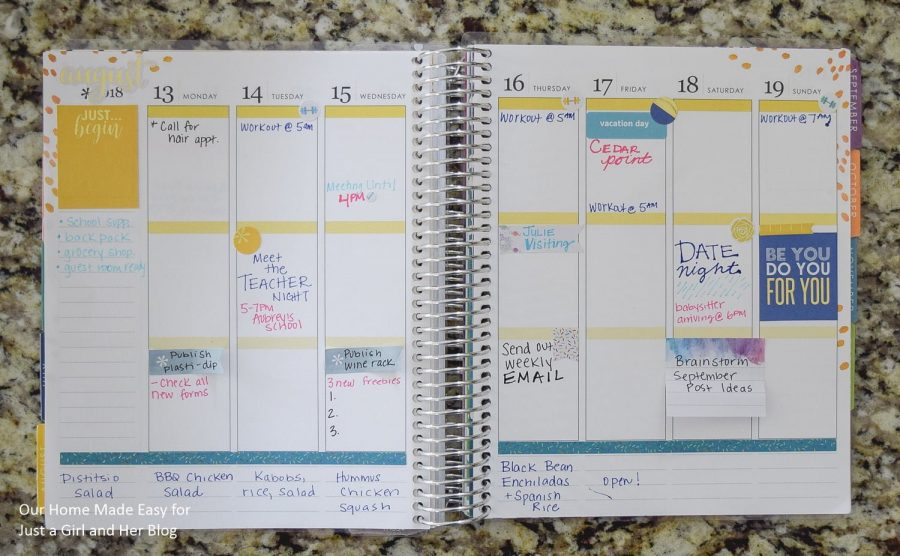 august
* '18
JUST...
begin
• School supp.
• back pack
• grocery shop.
• guest room ready
13 MONDAY
* Call for
hair appt.
Publish
plasti-dip
- Check all
new forms
14 TUESDAY
Workout @ 5am
Meet
the
TEACHER
NIGHT
5-7PM
Aubrey's
SCHOOL
15 WEDNESDAY
Meeting Until
4PM
Publish
wine rack
3 new freebies
1.
2.
3.
16 THURSDAY
Workout @ 5am
JULIE
Visiting
Send out
weekly
EMAIL
17 FRIDAY
vacation day
CEDAR
point
Workout @ 5am
18 SATURDAY
DATE
night
babysitter
arriving @ 6pm
Brainstorm
September
Post Ideas
19 SUNDAY
Workout @ 7am
BE YOU
DO YOU
FOR YOU
Distitsio
Salad
BBQ Chicken
Salad
Kabobs,
rice, Salad
Hummus
Chicken
Squash
Black Bean
Enchiladas
+ Spanish
Rice
open!
SEPTEMBER
OCTOBER
Our Home Made Easy for
Just a Girl and Her Blog